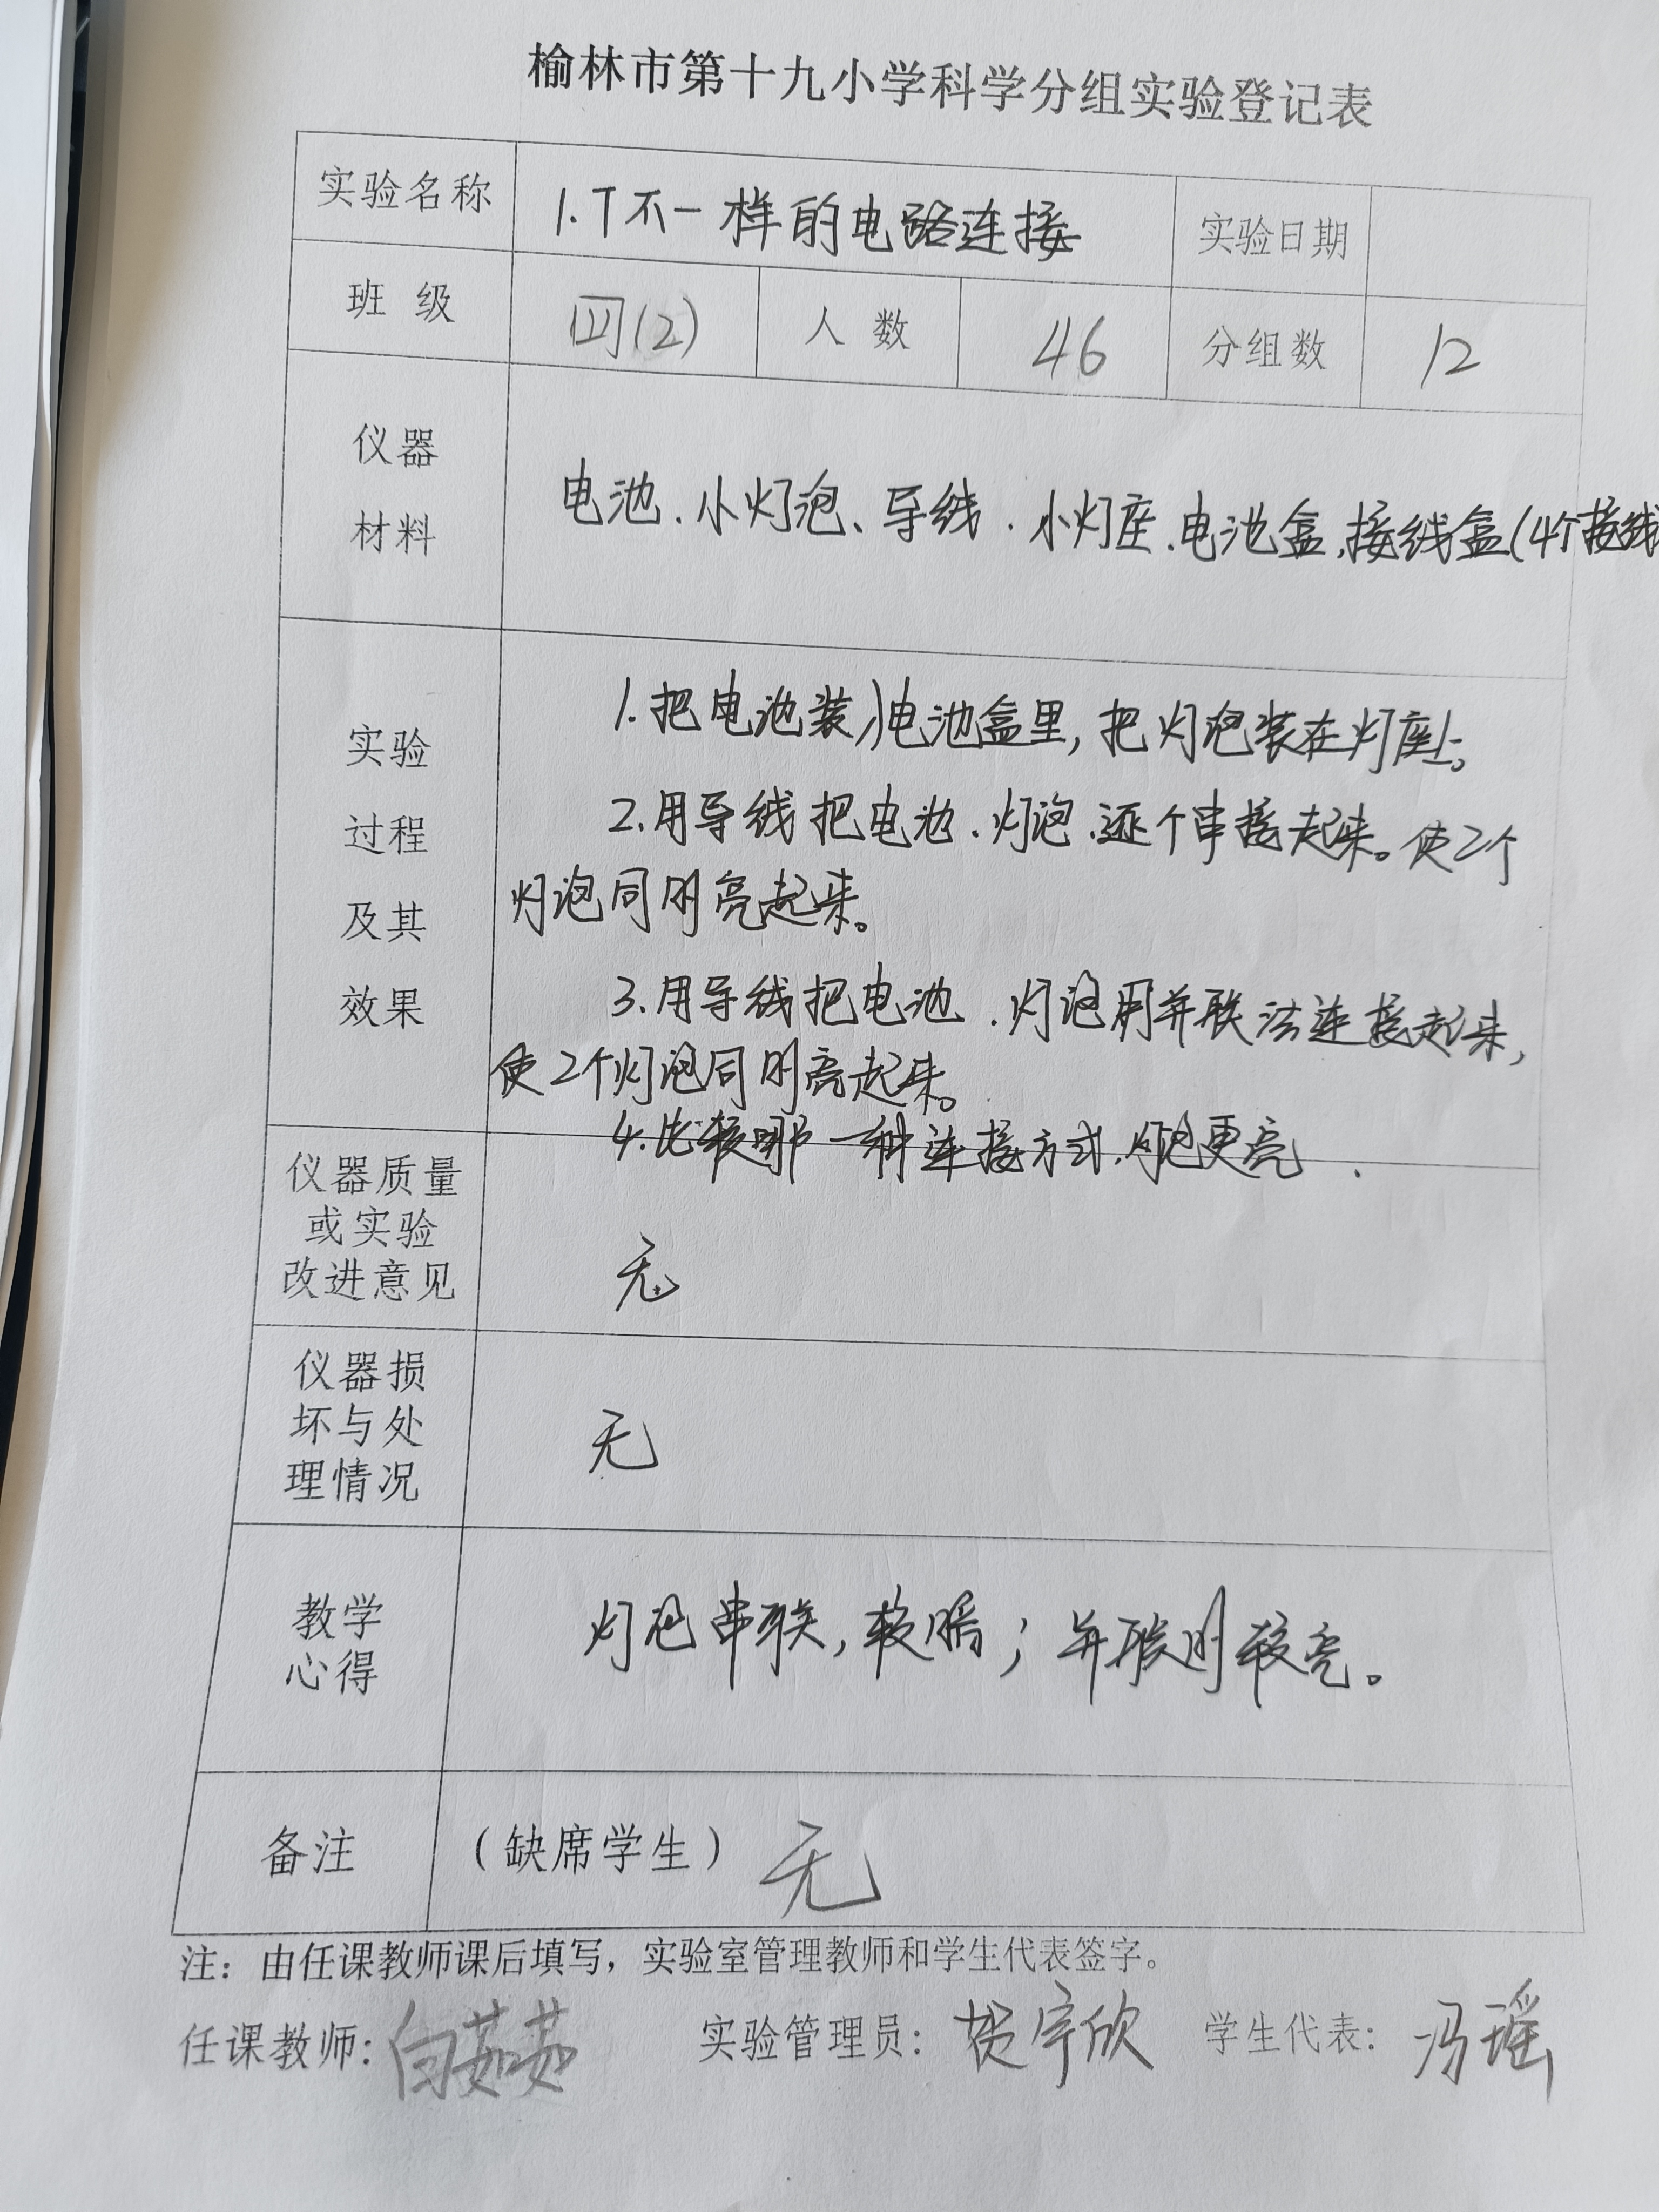 榆林市第十九小学科学分组实验登记表
实验名称 1.7不一样的电路连接 实验日期
班级 四(2) 人数 46 分组数 12
仪器
材料
电池、小灯泡、导线、小灯座、电池盒,接线盒(4个接线
实验
过程
及其
效果
1.把电池装入电池盒里,把灯泡装在灯座上。
2.用导线把电池、灯泡、逐个串接起来。使2个
灯泡同时亮起来。
3.用导线把电池、灯泡用并联法连接起来,
使2个灯泡同时亮起来。
4.比较哪一种连接方式,灯泡更亮.
仪器质量
或实验
改进意见
无
仪器损
坏与处
理情况
无
教学
心得
灯泡串联,较暗;并联则较亮。
备注 (缺席学生) 无
注:由任课教师课后填写,实验室管理教师和学生代表签字。
任课教师:白茹茹 实验管理员:贺宇欣 学生代表:冯瑶